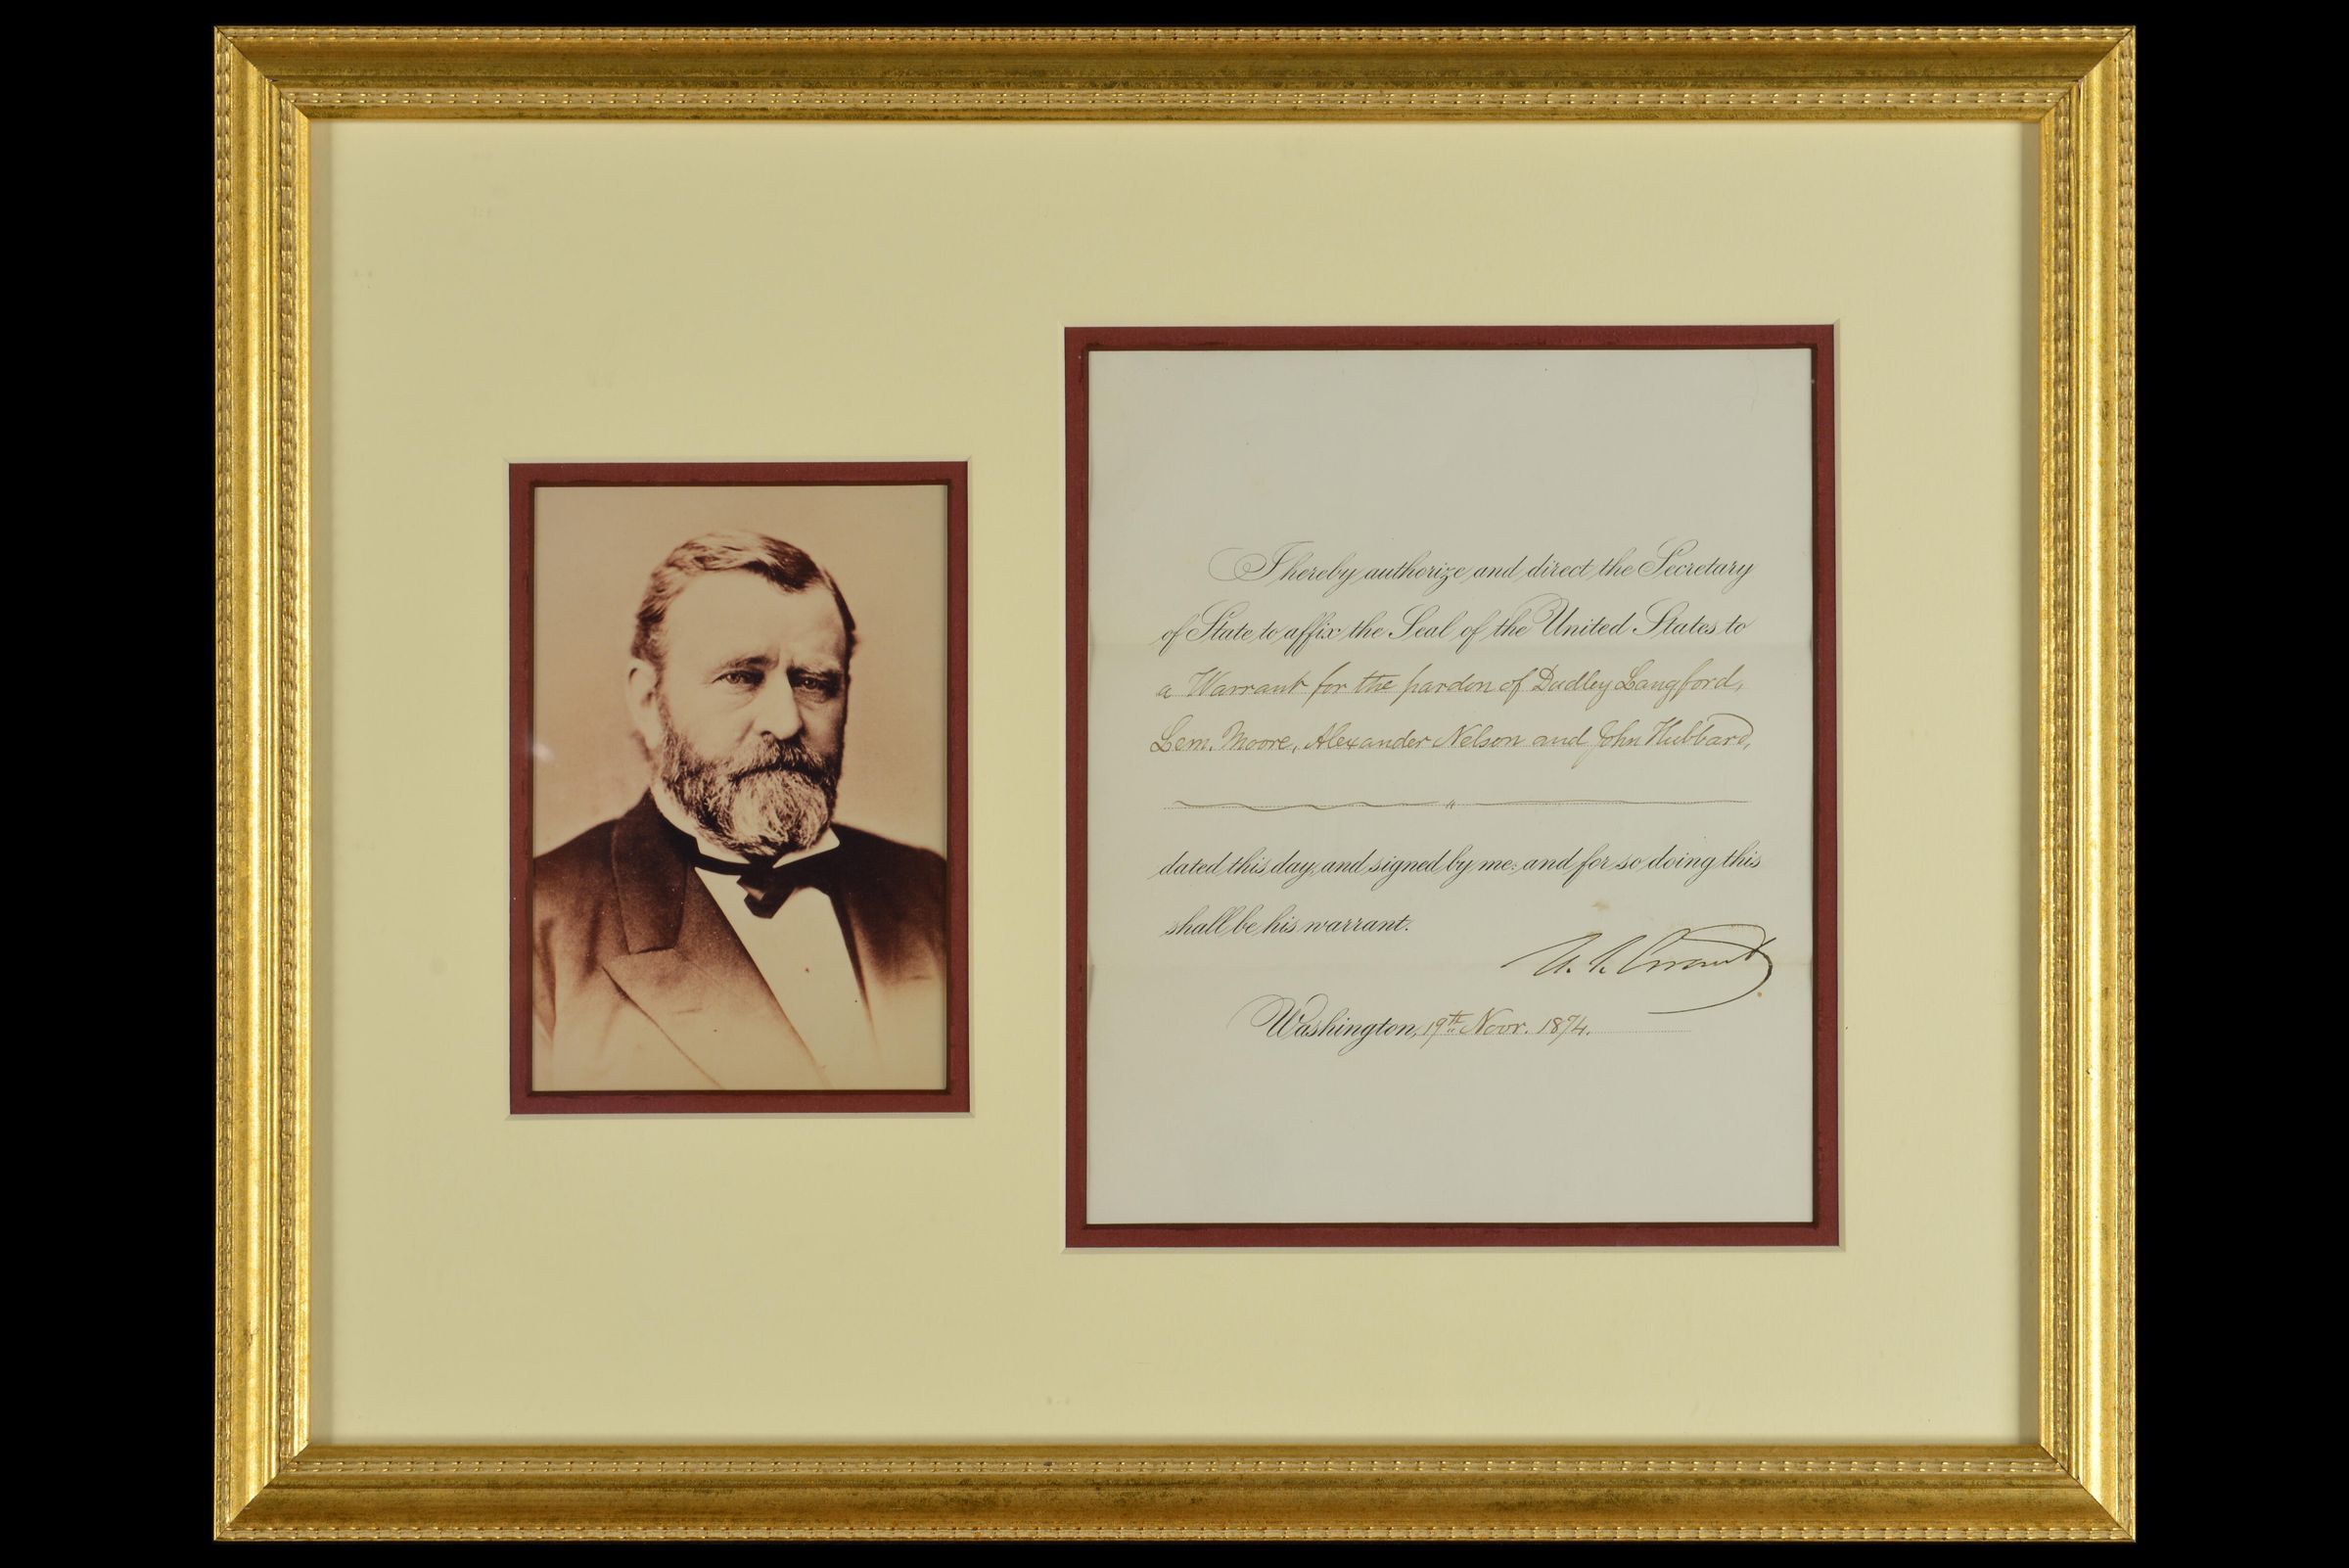 I hereby authorize and direct the Secretary
of State to affix the Seal of the United States to
a Warrant for the pardon of Dudley Langford,
Lem. Moore, Alexander Nelson and John Hubbard,
dated this day, and signed by me: and for so doing this
shall be his warrant.
U. S. Grant
Washington, 19th Novr. 1874.